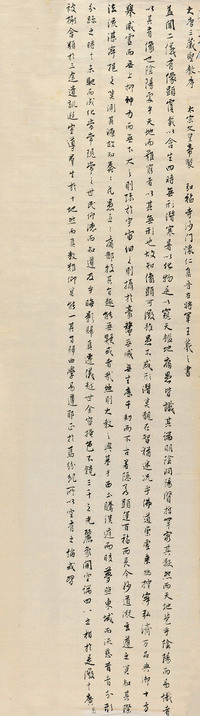 大唐三藏聖教序 太宗文皇帝製 弘福寺沙門懷仁集晉右將軍王羲之書
蓋聞二儀有像顯覆載以含生四時無形潛寒暑以化物是以窺天鑑地庸愚皆識其端明陰洞陽賢哲罕窮其數然而天地苞乎陰陽而易識者
以其有像也陰陽處乎天地而難窮者以其無形也故知像顯可徵雖愚不惑形潛莫覩在智猶迷況乎佛道崇虛乘幽控寂弘濟萬品典御十方
舉威靈而無上抑神力而無下大之則彌於宇宙細之則攝於豪釐無滅無生歷千劫而不古若隱若顯運百福而長今妙道凝玄遵之莫知其際
法流湛寂挹之莫測其源故知蠢蠢凡愚區區庸鄙投其旨趣能無疑或者哉然則大教之興基乎西土騰漢庭而皎夢照東域而流慈昔者分形
分跡之時言未馳而成化當常現常之世民仰德而知遵及乎晦影歸真遷儀越世金容掩色不鏡三千之光麗象開圖空端四八之相於是微言廣
被拯含類於三途遺訓遐宣導群生於十地然而真教難仰莫能一其旨歸曲學易遵邪正於焉紛糺所以空有之論或習